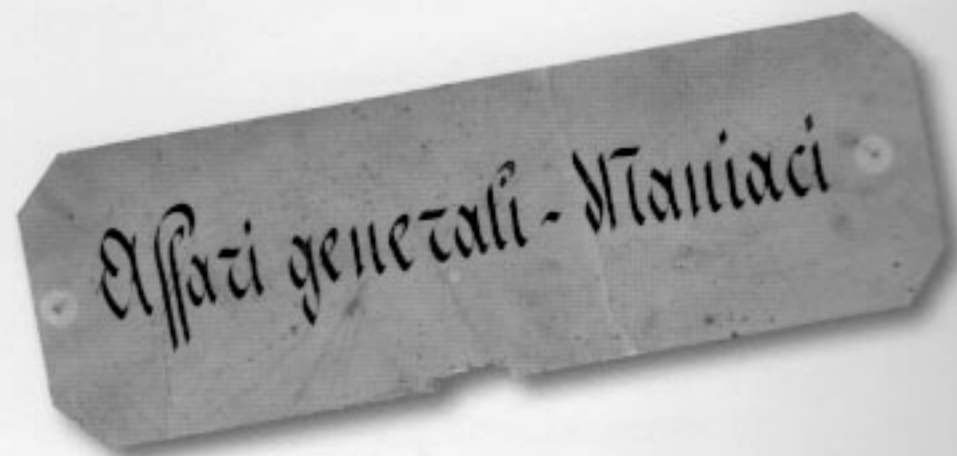 Affari generali - Maniaci